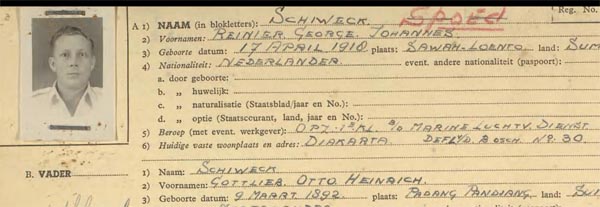 A 1) NAAM (in blokletters): SCHIWECK. SPOED Reg. No.
2) Voornamen: REINIER. GEORGE. JOHANNES.
3) Geboorte datum: 17 APRIL 1918 plaats: SAWAH-LOENTO. land: SUM
4) Nationaliteit: NEDERLANDER. event. andere nationaliteit (paspoort):
a. door geboorte:
b. „ huwelijk:
c. „ naturalisatie (Staatsblad/jaar en No.):
d. „ optie (Staatscourant, land, jaar en No.):
5) Beroep (met event. werkgever): MARINE LUCHTV. DIENST
6) Huidige vaste woonplaats en adres: DJAKARTA. BOSCH. No. 30.
B. VADER 1) Naam: SCHIWECK
2) Voornamen: GOTTLIEB. OTTO. HEINRICH.
3) Geboorte datum: 9 MAART 1892 plaats: PADANG PANDJANG. land: